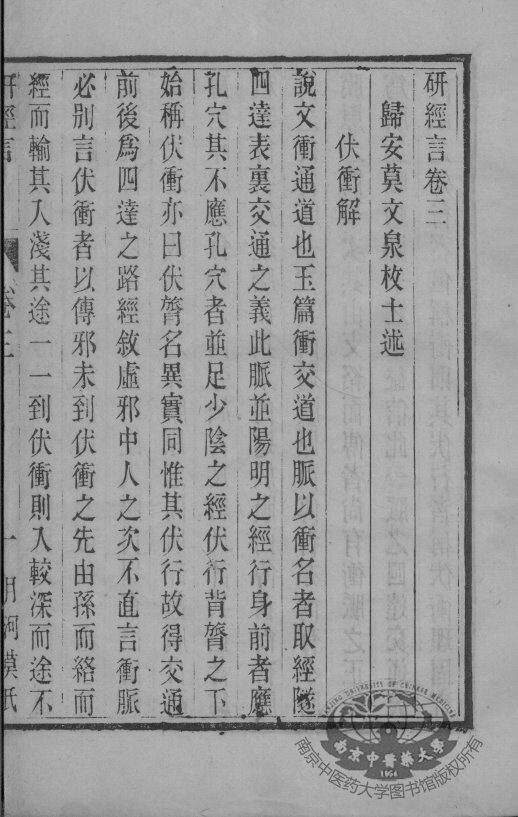 研經言卷三
歸安莫文泉枚士述
伏衝解
說文衝通道也玉篇衝交道也脈以衝名者取經隧
四達表裏交通之義此脈並陽明之經行身前者應
孔穴其不應孔穴者並足少陰之經伏行背膂之下
始稱伏衝亦曰伏膂名異實同惟其伏行故得交通
前後爲四達之路經敘虛邪中人之次不直言衝脈
必別言伏衝者以傳邪未到伏衝之先由孫而絡而
經而輸其入淺其途一一到伏衝則入較深而途不
研經言 卷三 一 月河莫氏
NANJING UNIVERSITY OF CHINESE MEDICINE
南京中醫藥大學
1954
南京中医药大学图书馆版权所有